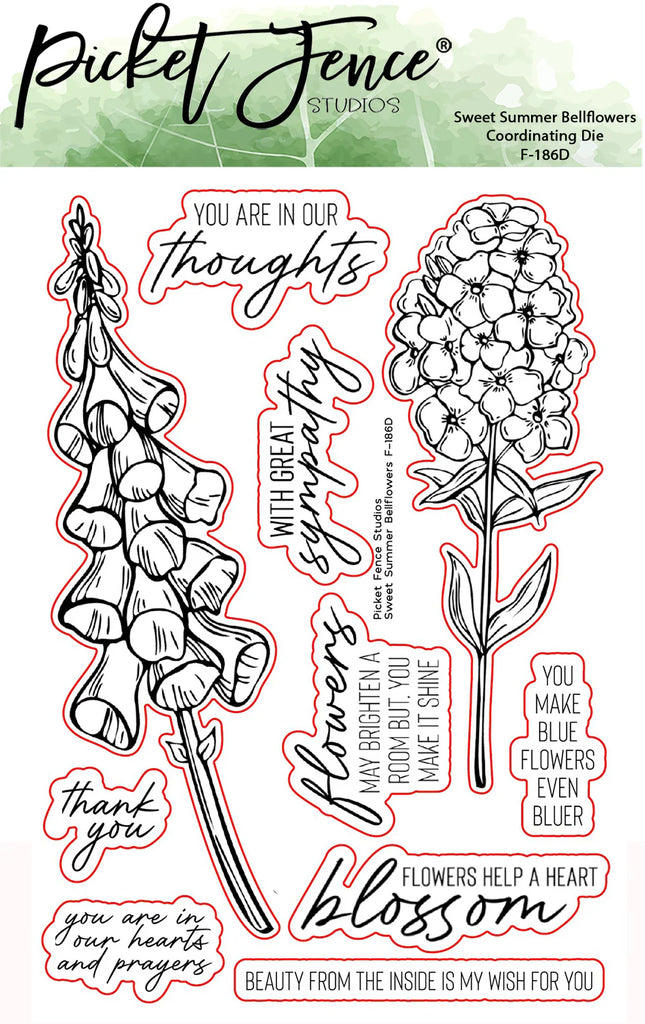 Picket Fence®
STUDIOS
Sweet Summer Bellflowers
Coordinating Die
F-186D
YOU ARE IN OUR
thoughts
WITH GREAT
sympathy
Picket Fence Studios
Sweet Summer Bellflowers F-186D
flowers
MAY BRIGHTEN A
ROOM BUT, YOU
MAKE IT SHINE
YOU
MAKE
BLUE
FLOWERS
EVEN
BLUER
thank
you
FLOWERS HELP A HEART
blossom
you are in
our hearts
and prayers
BEAUTY FROM THE INSIDE IS MY WISH FOR YOU